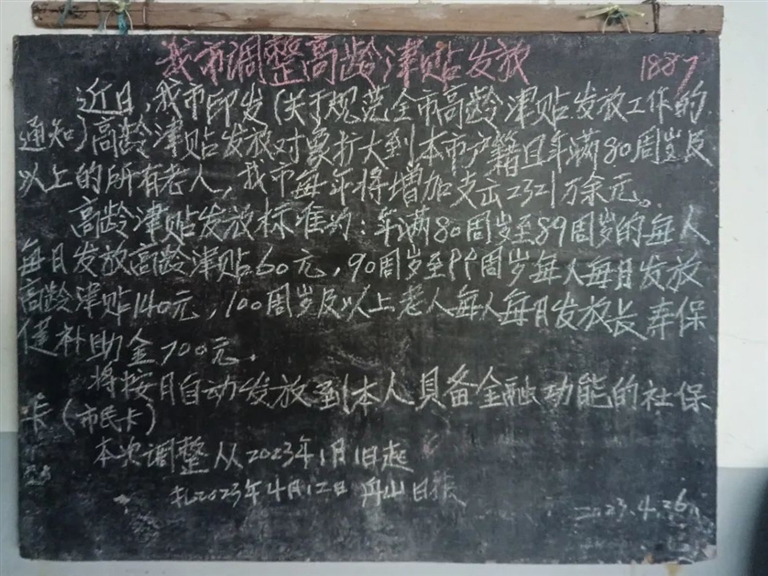 我市调整高龄津贴发放 1887
近日,我市印发(关于规范全市高龄津贴发放工作的
通知)高龄津贴发放对象扩大到本市户籍且年满80周岁及
以上的所有老人,我市每年将增加支出2321万余元。
高龄津贴发放标准为:年满80周岁至89周岁的每人
每月发放高龄津贴60元,90周岁至99周岁每人每月发放
高龄津贴140元,100周岁及以上老人每人每月发放长寿保
健补助金700元.
将按月自动发放到本人具备金融功能的社保
卡(市民卡)
本次调整从2023年1月1日起
扎2023年4月12日 舟山日报
2023.4.26